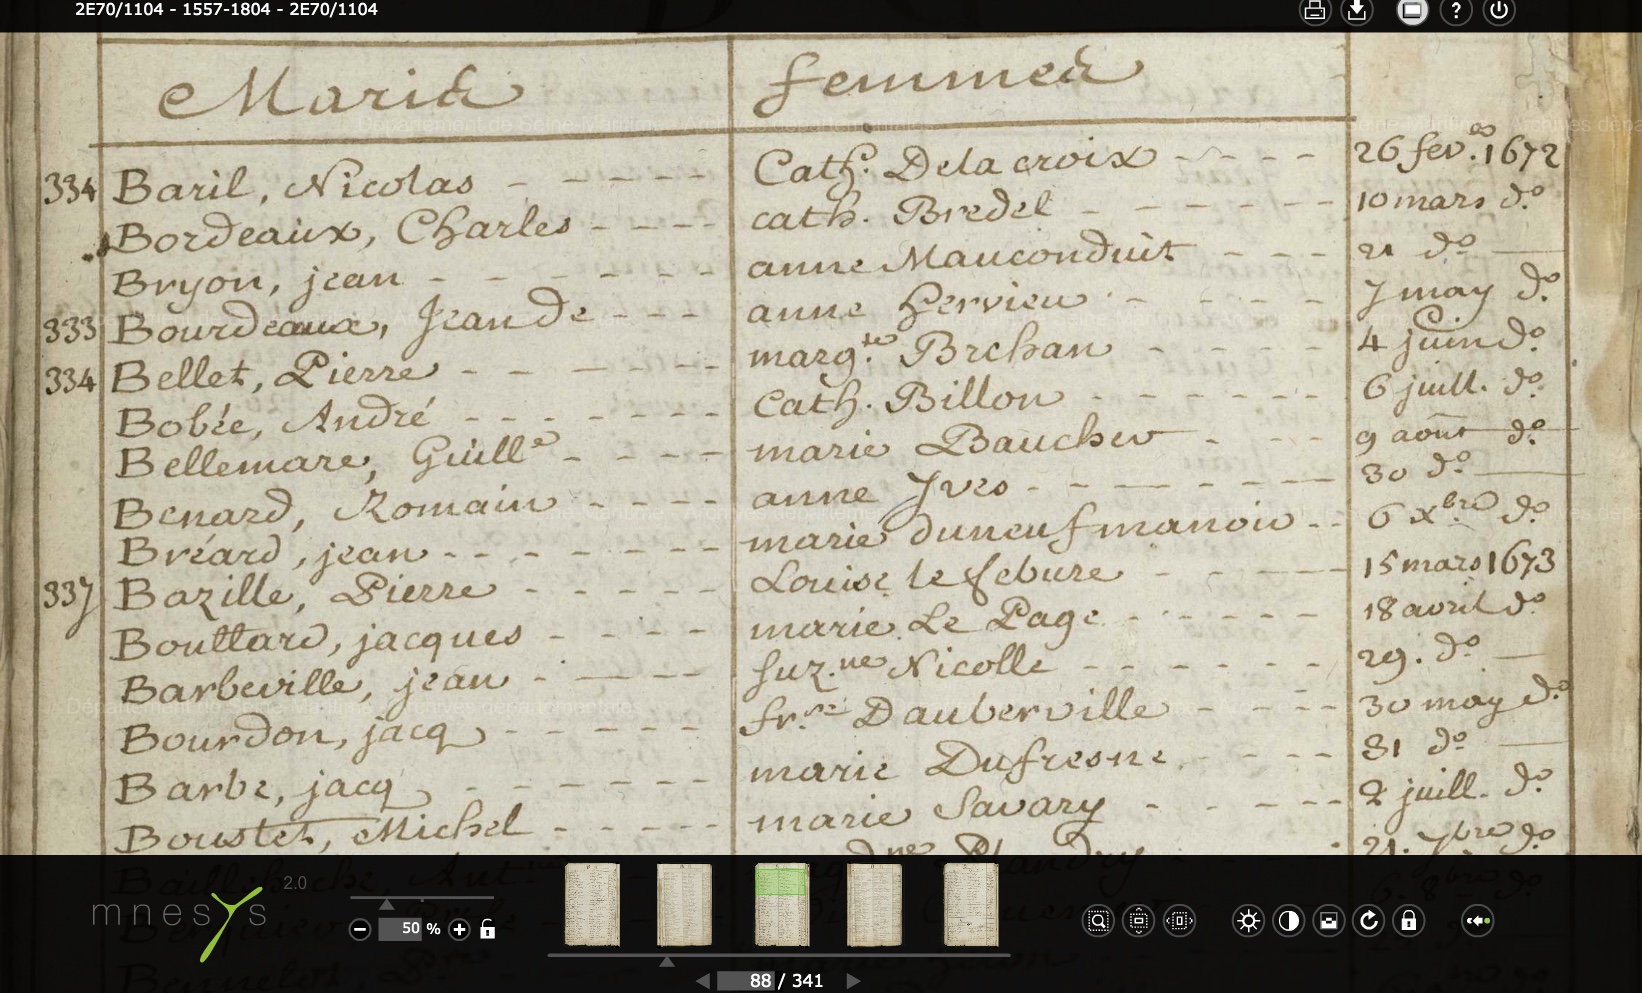 2E70/1104 - 1557-1804 - 2E70/1104
Maris femmes
334 Baril, Nicolas - - - - - Cath. Delacroix - - - - 26 fev. 1672
Bordeaux, Charles - - - - cath. Bredel - - - - - - 10 mars do.
Bryon, jean - - - - - - - anne Mauconduit - - - 21 do
333 Bourdeaux, Jean De - - - anne Hervieu - - - - - 7 may do.
334 Bellet, Pierre - - - - - - margte. Brehan - - - - - 4 juin do.
Bobée, André - - - - - - - Cath. Billon - - - - - - 6 juill. do.
Bellemare, Guille - - - - marie Baucher - - - 9 août do.
Benard, Romain - - - - anne Yves - - - - - - - 30 do.
Bréard, jean - - - - - - - marie duneufmanoir - - 6 xbre do.
337 Bazille, Pierre - - - - - Louise lefebure - - - - 15 mars 1673
Bouttard, jacques - - - - marie Le Page - - - - - 18 avril do
Barbeville, jean - - - - - Suz.ne Nicolle - - - - - - 29. do
Bourdon, jacq - - - - - fr.se Dauberville - - - - 30 may do.
Barbe, jacq - - - - - - marie Dufresne - - - - 31 do.
Boustet, Michel - - - - - marie Savary - - - - - 2 juill. do.
21. 7bre do.
mnesys 2.0
50 %
88 / 341